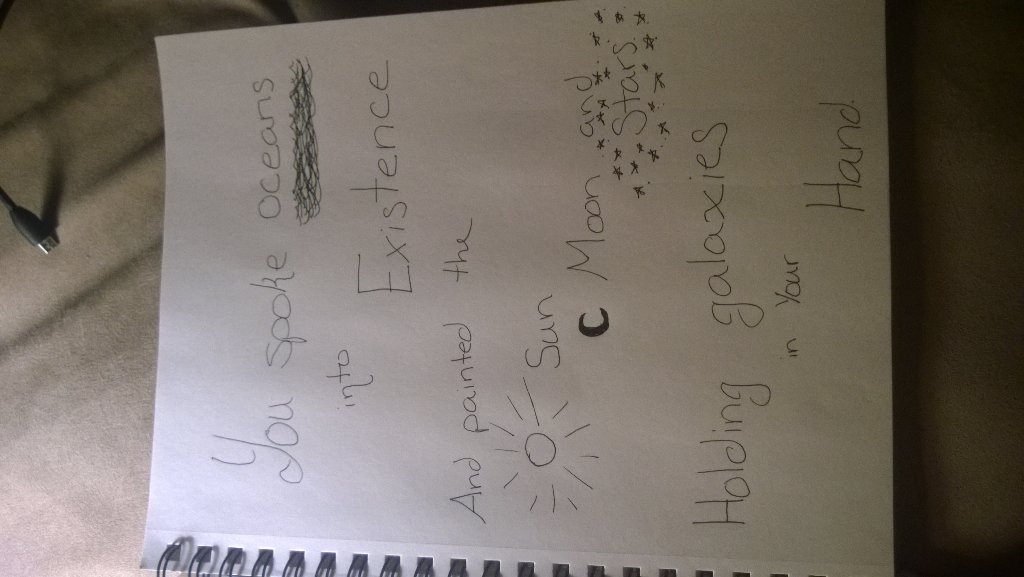 You spoke oceans
into
Existence
And painted the
Sun
Moon and
Stars
Holding galaxies
in Your
Hand